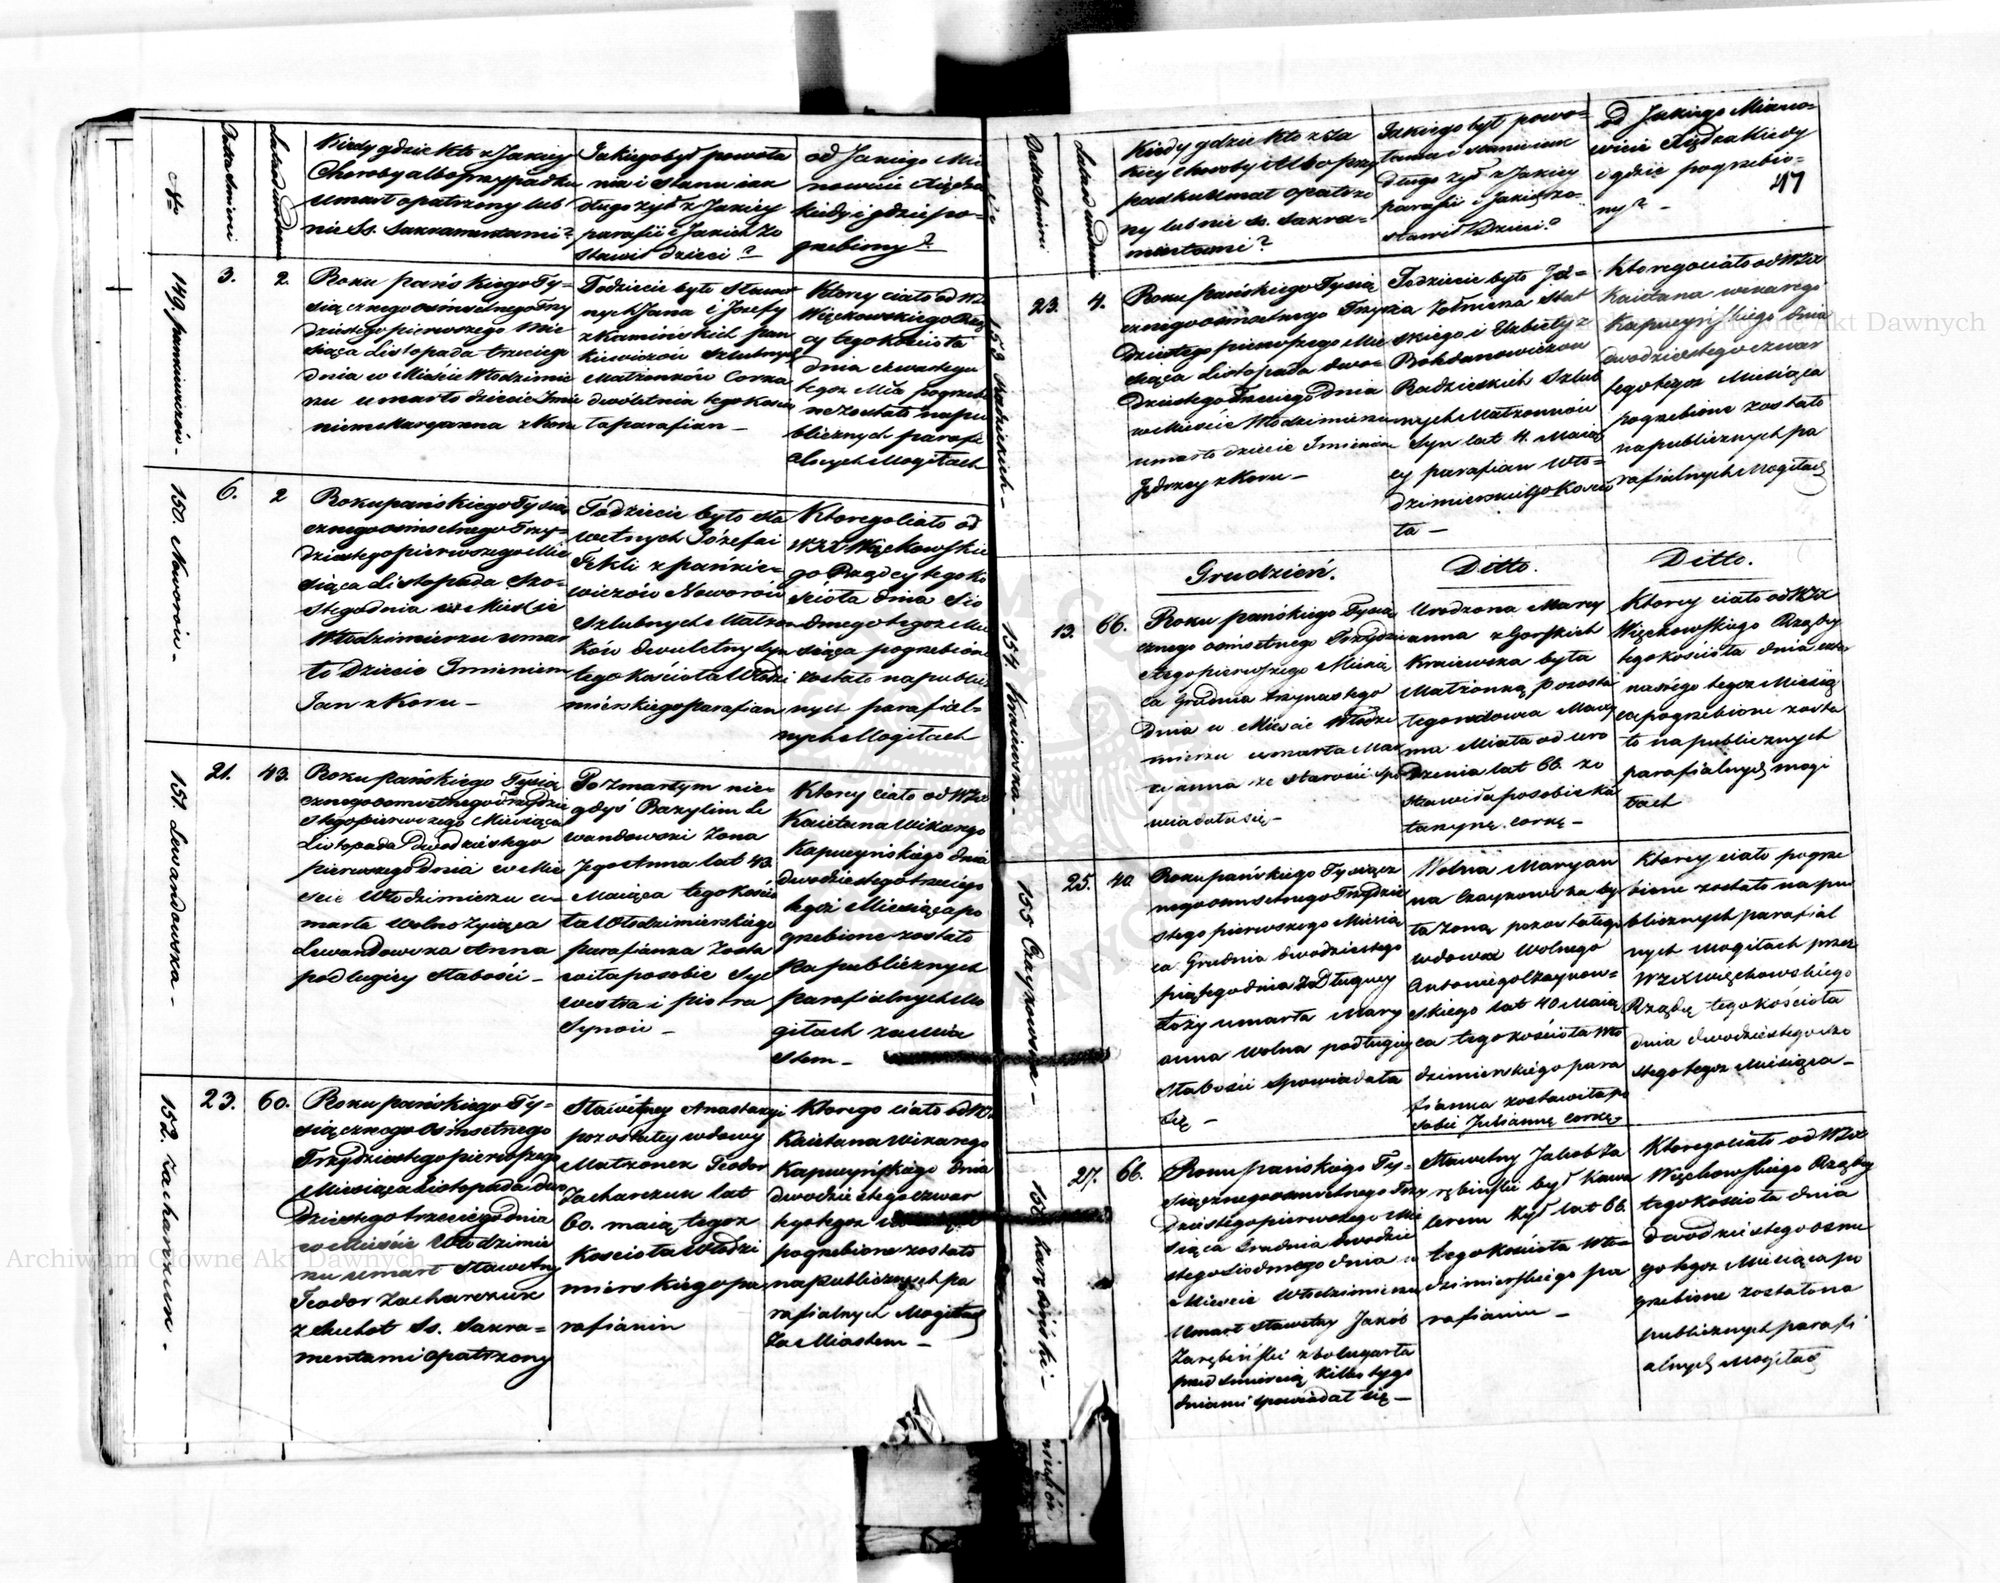 No
Data dnieci
Lata od urodzenia
Kiedy gdzie kto z Jakiey
Choroby albo przypadku
umarł opatrzony lub
nie Ss. Sakramentami?
Jakiego był powoła
nia i stanu iak
długo żył z Jakiey
parafii i Jakich zo
stawił dzieci?
od Jakiego Mia
nowicie Xiędza
kiedy i gdzie po=
grzebiony?
149.
3.
2.
Roku pańskiego Ty=
siącznego ośmsetnego Trzy
dziestego pierwszego Mie
siąca Listopada trzeciego
dnia w Mieście Włodzimie
rzu umarło dziecie Imie
niem Maryanna z Koru
To dziecie było Sławe
nych Jana i Jozefy
z Kamińskich Pan
kiewiczow Szlubnych
Matżonków Corka
dwóletnia tego Kościo
ła parafian –
Ktorey ciało od WJX
Więckowskiego Rząd
cy tego Kościoła
dnia czwartego
tegoż Mca pogrzeb
ne zostało na pu
blicznych parafi
alnych Mogiłach
150. Noworow –
6.
2
Roku pańskiego Tysią
cznego ośmsetnego Trzy=
dziestego pierwszego Mie
siąca Listopada Szo=
stego dnia w Mieście
Włodzimierzu umar
ło Dziecie Imieniem
Jan z Koru –
To dziecie było Sła
wetnych Józefa i
Tekli z Pańkie=
wiczów Noworów
Szlubnych Matżon
ków dwuletny Syn
tego Kościoła Włodzi
mirskiego parafian
Ktorego Ciało od
WJX Więckowskie
go Rządcy tego Ko
ścioła dnia Sio
dmego tegoż Mie
siąca pogrzebion
zostało na publicz
nych parafial=
nych Mogiłach
151. Lewandowska –
21.
43.
Roku pańskiego Tysią
cznego osmsetnego Trzydzie
stego pierwszego Miesiąca
Listopada Dwodziestego
pierwszego Dnia w Mie
ście Włodzimierzu u=
marła wolno żyiąca
Lewandowska Anna
po długiey słabości –
Po zmarłym nie=
gdyś Bazylim Le
wandowski żona
Jego Anna lat 43.
Maiąca tego Kościo
ła Włodzimierskiego
parafianka Zosta
wiła po sobie Syl
westra i Piotra
Synow –
Ktorey ciało od WJX
Kaietana Wikarego
Kapucyńskiego dnia
dwodziestego trzeciego
tegoż Miesiąca po
grzebione zostało
Na publicznych
parafialnych Mo
giłach za Mia
stem –
152. Zacharczuk –
23.
60.
Roku pańskiego Ty=
siącznego Osmsetnego
Trzydziestego pierwszego
Miesiąca Listopada dwo
dziestego trzeciego dnia
w Mieście Włodzimie
rzu umarł sławetny
Teodor Zacharczuk
z Suchot Ss. Sakra=
mentami opatrzony
Sławetney Anastazyi
pozostałey wdowy
Matżonek Teodor
Zacharczuk lat
60. maią tegoż
Kościoła Włodzi
mierskiego pa
rafianin
Ktorego ciało od WJX
Kaietana Wikarego
Kapucyńskiego dnia
dwodziestego czwar
tego tegoż
pogrzebione zostało
na publicznych pa
rafialnych Mogiłach
za Miastem –
47
Kiedy gdzie kto z Ja
kiey choroby Albo przy
padku umarł opatrzo
ny lub nie ss. Sakra=
mentami?
Jakiego był powo=
łania i stanu iak
długo żył z Jakiey
parafii i Jakie zo=
stawił Dzieci?
od Jakiego Miano=
wicie Xiędza kiedy
i gdzie pogrzebio=
ny? –
153
23.
4.
Roku pańskiego Tysią
cznego osmsetnego Trzy
dziestego pierwszego Mie
siąca Listopada dwo=
dziestego Trzeciego Dnia
w Mieście Włodzimierzu
umarło dziecie Imieniem
Jędrzey z Koru –
To dziecie było Ję=
rza Żołnierza
skiego i Elżbiety z
Bohdanowiczow
Radzieskich Szlub
nych Matżonków
Syn lat 4. Maią
cy parafian Wło=
dzimierskiego Kościo
ła –
Ktorego ciało od WJX
Kaietana wikarego
Kapucyńskiego dnia
dwodziestego czwar
tego tegoż Miesiąca
pogrzebione zostało
na publicznych pa
rafialnych Mogiłach
Grudzień.
Ditto.
Ditto.
154. Kraiewska –
13.
66.
Roku pańskiego Tysią
cznego osmsetnego Trzydzi
estego pierwszego Miesią
ca Grudnia trzynastego
Dnia w Mieście Włodzi
mierzu umarła Mar
yanna ze starości Spo
wiadała się –
Urodzona Mary
anna z Gorskich
Kraiewska była
Matżonką pozosta
łego wdowa Mary
nna Miała od uro
dzenia lat 66. zo
stawiła po sobie Ka
tarzynę corkę –
Ktorey ciało od WJX
Więckowskiego Rządcy
tego Kościoła dnia czter
nastego tegoż Miesią
ca pogrzebione zosta
ło na publicznych
parafialnych mogi
łach
155 Czaykowska –
25.
40.
Roku pańskiego Tysiącz
nego osmsetnego Trzydzie
stego pierwszego Miesią
ca Grudnia dwodziestego
piątego dnia z Długiey
Łoży umarła Mary
anna Wolna po długiey
słabości Spowiadała
Się –
Wolna Maryan
na Czaykowska by
ła Żoną pozostałego
wdowa Wolnego
Antoniego Czaykow=
skiego lat 40 Maią
ca tego Kościoła Wło
dzimierskiego para
fianka zostawiła po
sobie Juliannę corkę.
Ktorey ciało pogrze
bione zostało na pu
blicznych parafial
nych Mogiłach przez
WJX Więckowskiego
Rządcę tego Kościoła
dnia dwodziestego szo
stego tegoż Miesiąca –
156 Zarębiński –
27.
66.
Roku pańskiego Ty=
siącznego osmsetnego Trzy
dziestego pierwszego Mie
siąca Grudnia dwodzie
stego Siodmego dnia w
Mieście Włodzimierzu
Umarł sławetny Jakób
Zarębiński z bolu garła
przed śmiercią kilko tygo
dniami spowiadał się –
Sławetny Jakob Za
rębiński był Kawa
lerem żył lat 66.
tego Kościoła Wło=
dzimierskiego pa
rafianin –
Ktorego ciało od WJX
Więckowskiego Rządcy
tego Kościoła dnia
dwodziestego osme
go tegoż Miesiąca po
grzebione zostało na
publicznych parafi
alnych Mogiłach
Archiwum Główne Akt Dawnych
Archiwum Główne Akt Dawnych